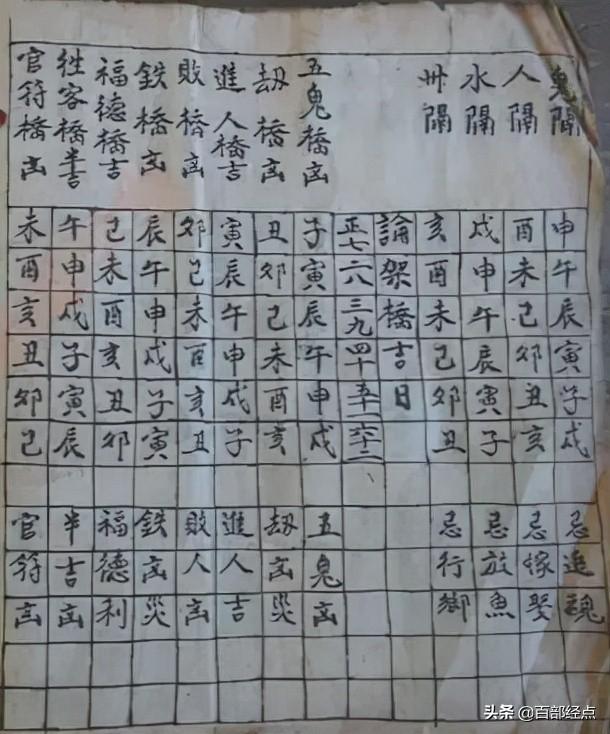 鬼隔 申午辰寅子戌 忌追魂
人隔 酉未巳卯丑亥 忌嫁娶
水隔 戌申午辰寅子 忌放魚
州隔 亥酉未巳卯丑 忌行鄉
論架橋吉日
正七 二八 三九 四十 五十一 六十二
五鬼橋凶 子寅辰午申戌 五鬼凶
劫橋凶 丑卯巳未酉亥 劫凶災
進人橋吉 寅辰午申戌子 進人吉
敗橋凶 卯巳未酉亥丑 敗人凶
鉄橋凶 辰午申戌子寅 鉄凶災
福德橋吉 巳未酉亥丑卯 福德利
徃客橋半吉 午申戌子寅辰 半吉凶
官符橋凶 未酉亥丑卯巳 官符凶
头条 @百部经点